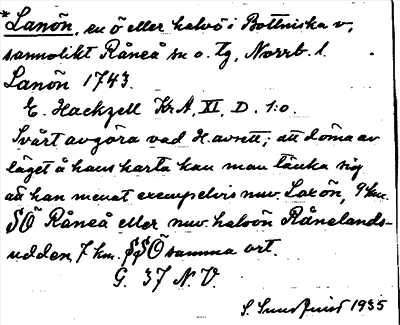 *Lanön, en ö eller halvö i Bottniska v,
sannolikt Råneå sn o. tg, Norrb. l.
Lanön 1743.
E. Hackzell Kr.A, XI, D. 1:o.
Svårt avgöra vad H. avsett; att döma av
läget å hans karta kan man tänka sig
att han menat exempelvis nuv. Laxön, 9 km.
SÖ Råneå eller nuv. halvön Rånelands-
udden, 7 km. SSÖ samma ort.
G. 37 N.V.
S. Sundquist 1935